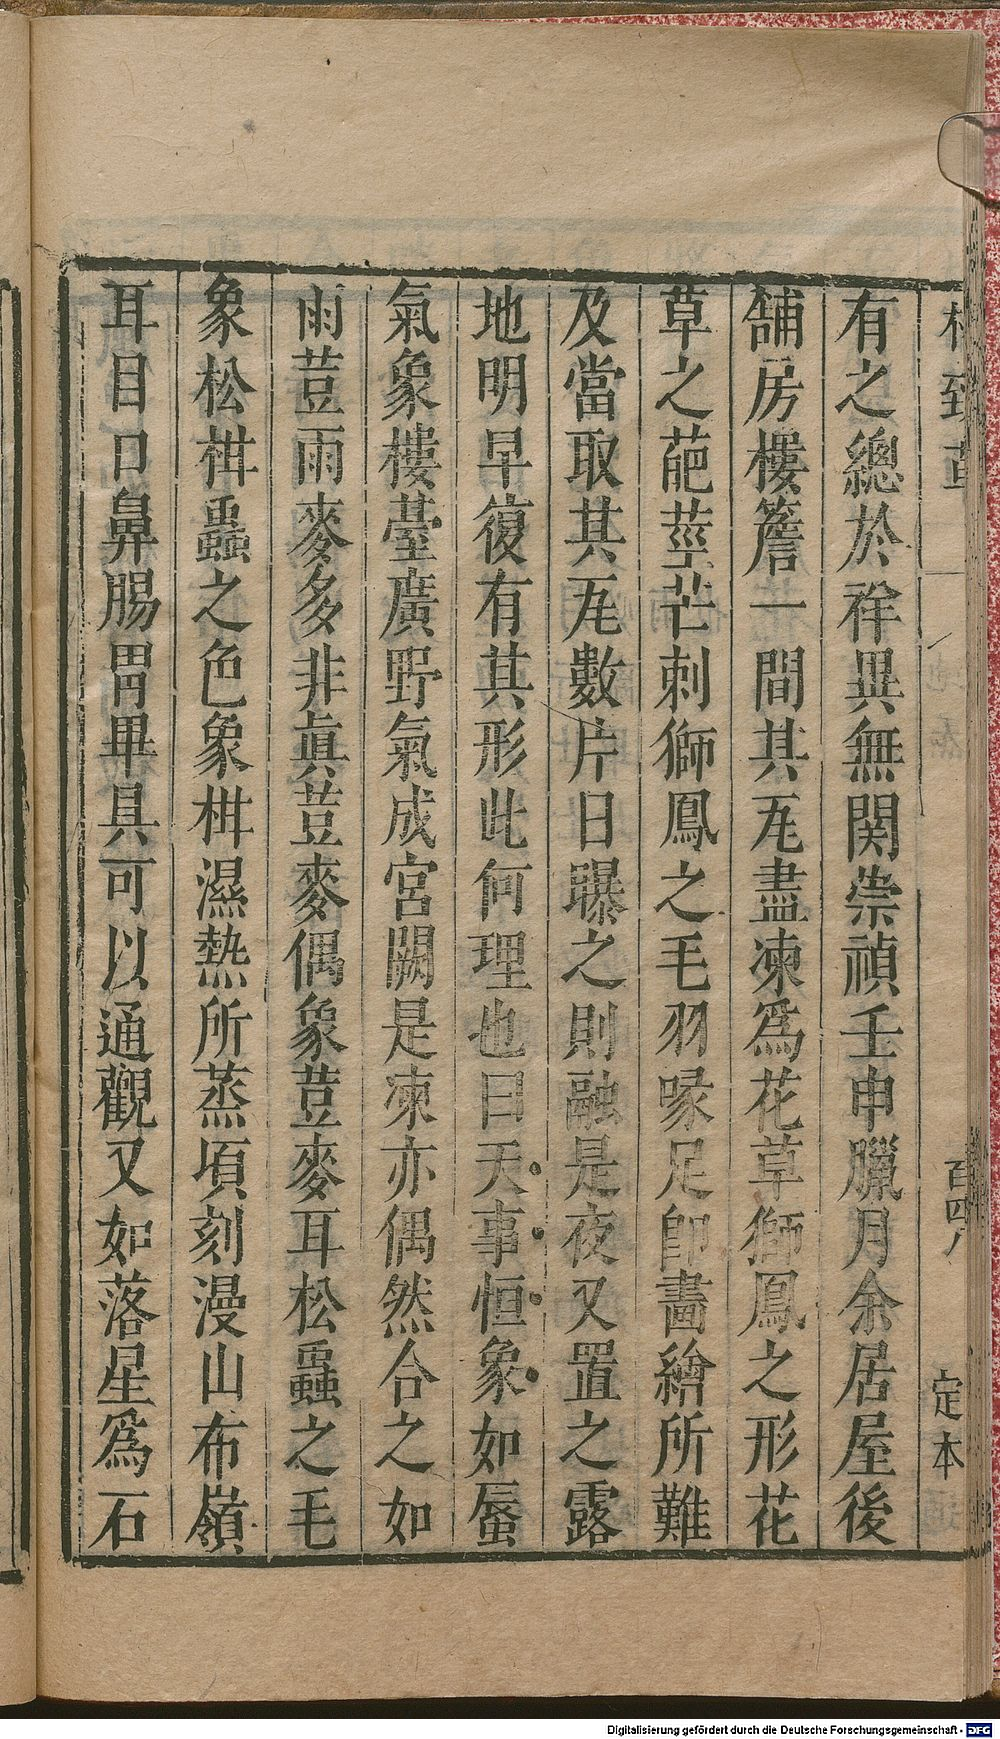 格致草
百四八
定本
有之總於祥異無関祟禎壬申臘月余居屋後
舖房樓簷一間其瓦盡凍爲花草獅鳳之形花
草之葩莖芒刺獅鳳之毛羽喙足卽畫繪所難
及當取其瓦數片日曝之則融是夜又置之露
地明早復有其形此何理也曰天事恒象如蜃
氣象樓臺廣野氣成宮闕是凍亦偶然合之如
雨荳雨麥多非眞荳麥偶象荳麥耳松蟲之毛
象松柑蟲之色象柑濕熱所蒸項刻漫山布嶺
耳目口鼻腸胃畢具可以通觀又如落星爲石
Digitalisierung gefördert durch die Deutsche Forschungsgemeinschaft - DFG